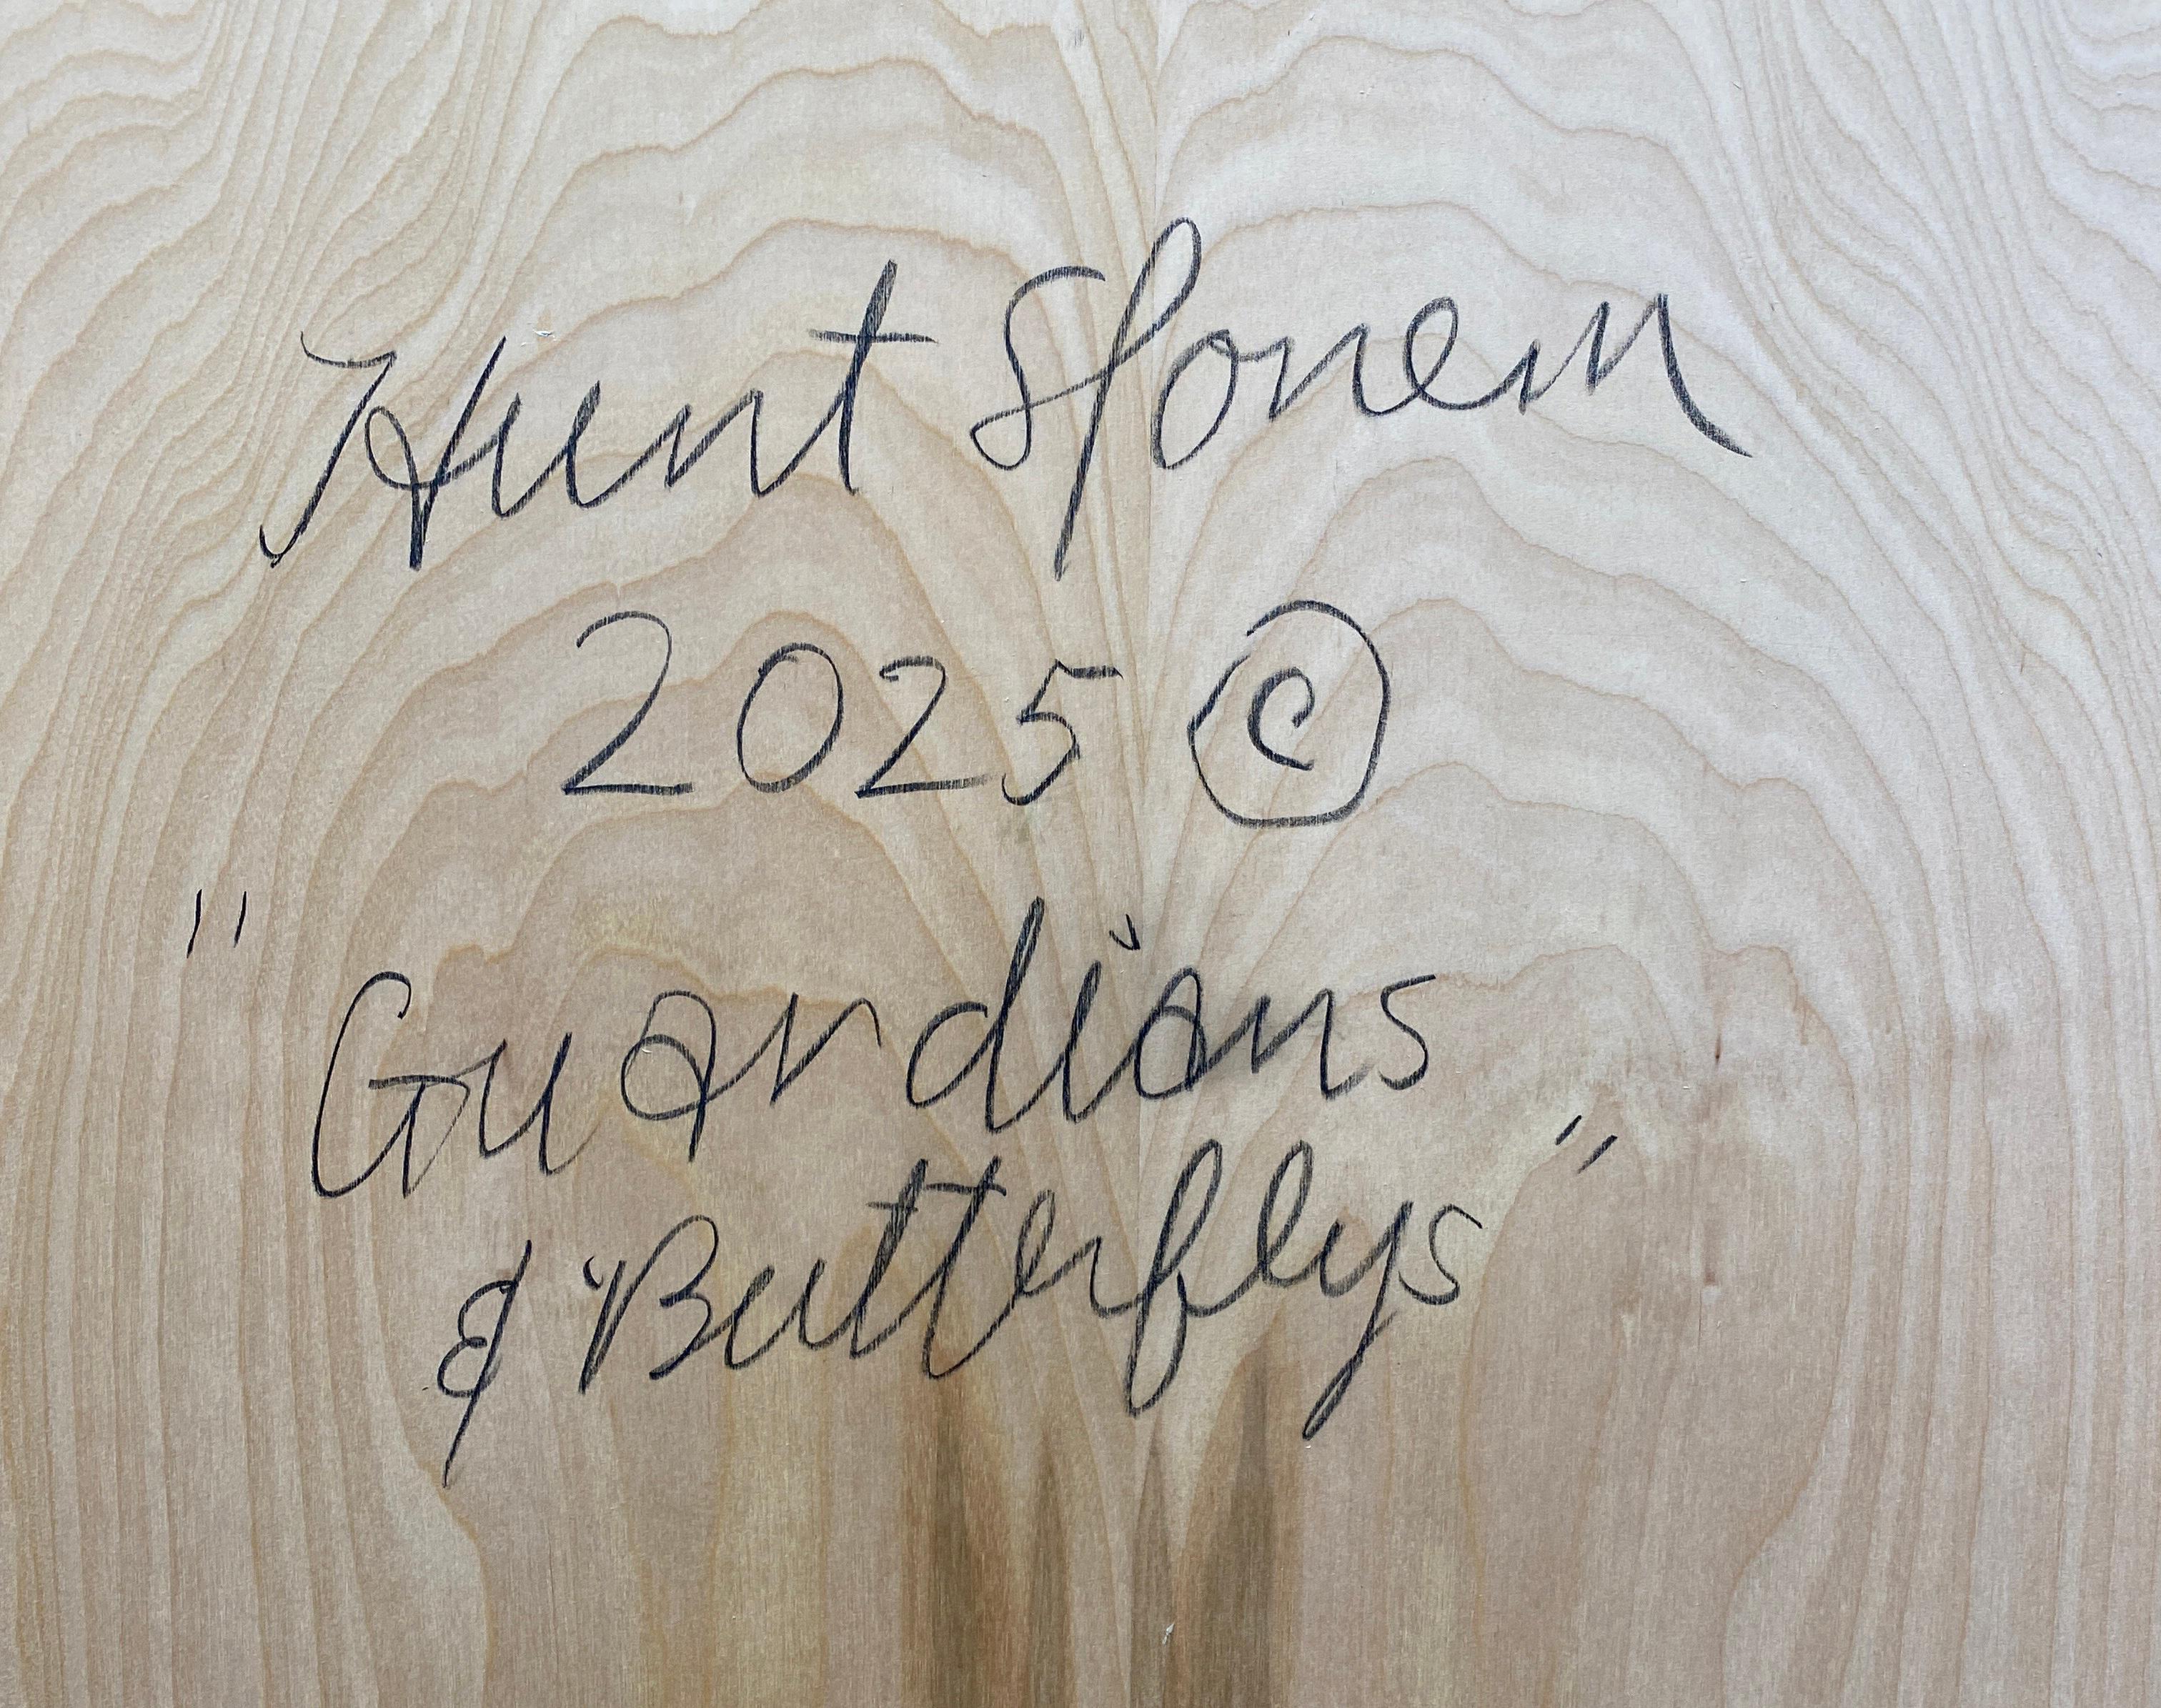 Hunt Slonem
2025 ©
"Guardians
& Butterflys"